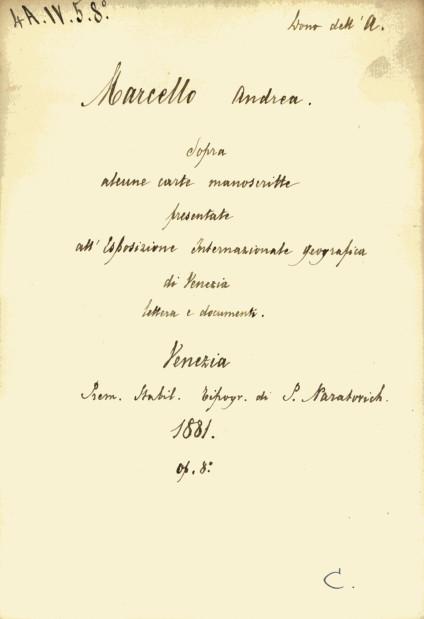 4A.IV.5.8º.
Dono dell' A.
Marcello Andrea.
Sopra
alcune carte manoscritte
presentate
all' Esposizione Internazionale geografica
di Venezia
lettera e documenti.
Venezia
Prem. Stabil. Tipogr. di P. Naratovich.
1881.
op. 8º
C.